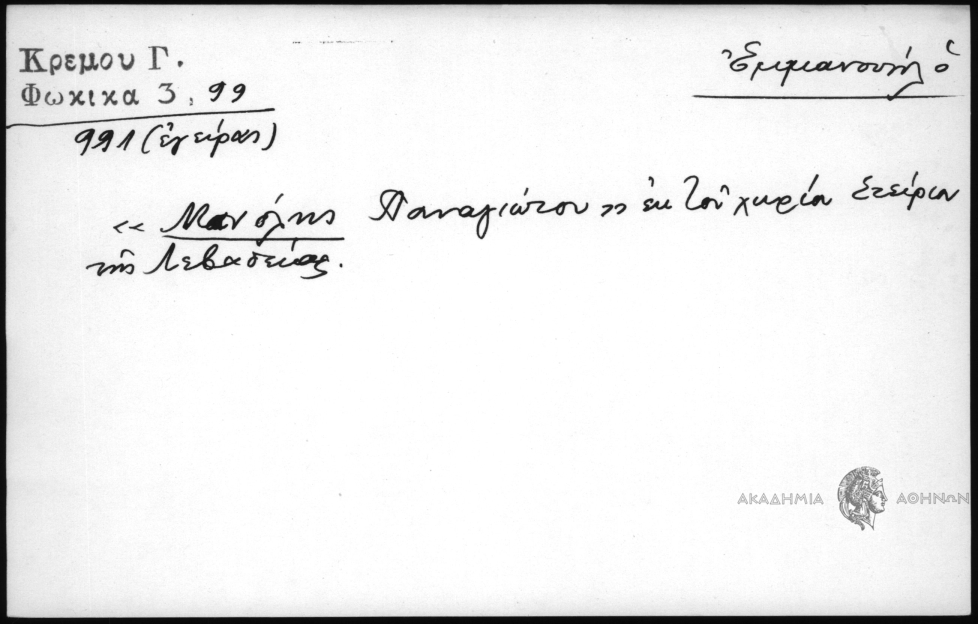 Κρεμου Γ.
Φωκικα 3, 99
991 (ἐγείρας)
Ἐμμανουήλ ὁ
« Μανόλης Παναγιώτου » ἐκ τοῦ χωρίου Στείριον
τῆς Λεβαδείας.
ΑΚΑΔΗΜΙΑ ΑΘΗΝΩΝ